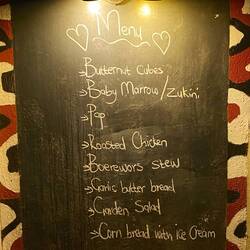 Menu
Butternut Cubes
Baby Marrow/Zukini
Pap
Roasted Chicken
Boerewors stew
Garlic butter bread
Garden Salad
Corn bread with Ice Cream